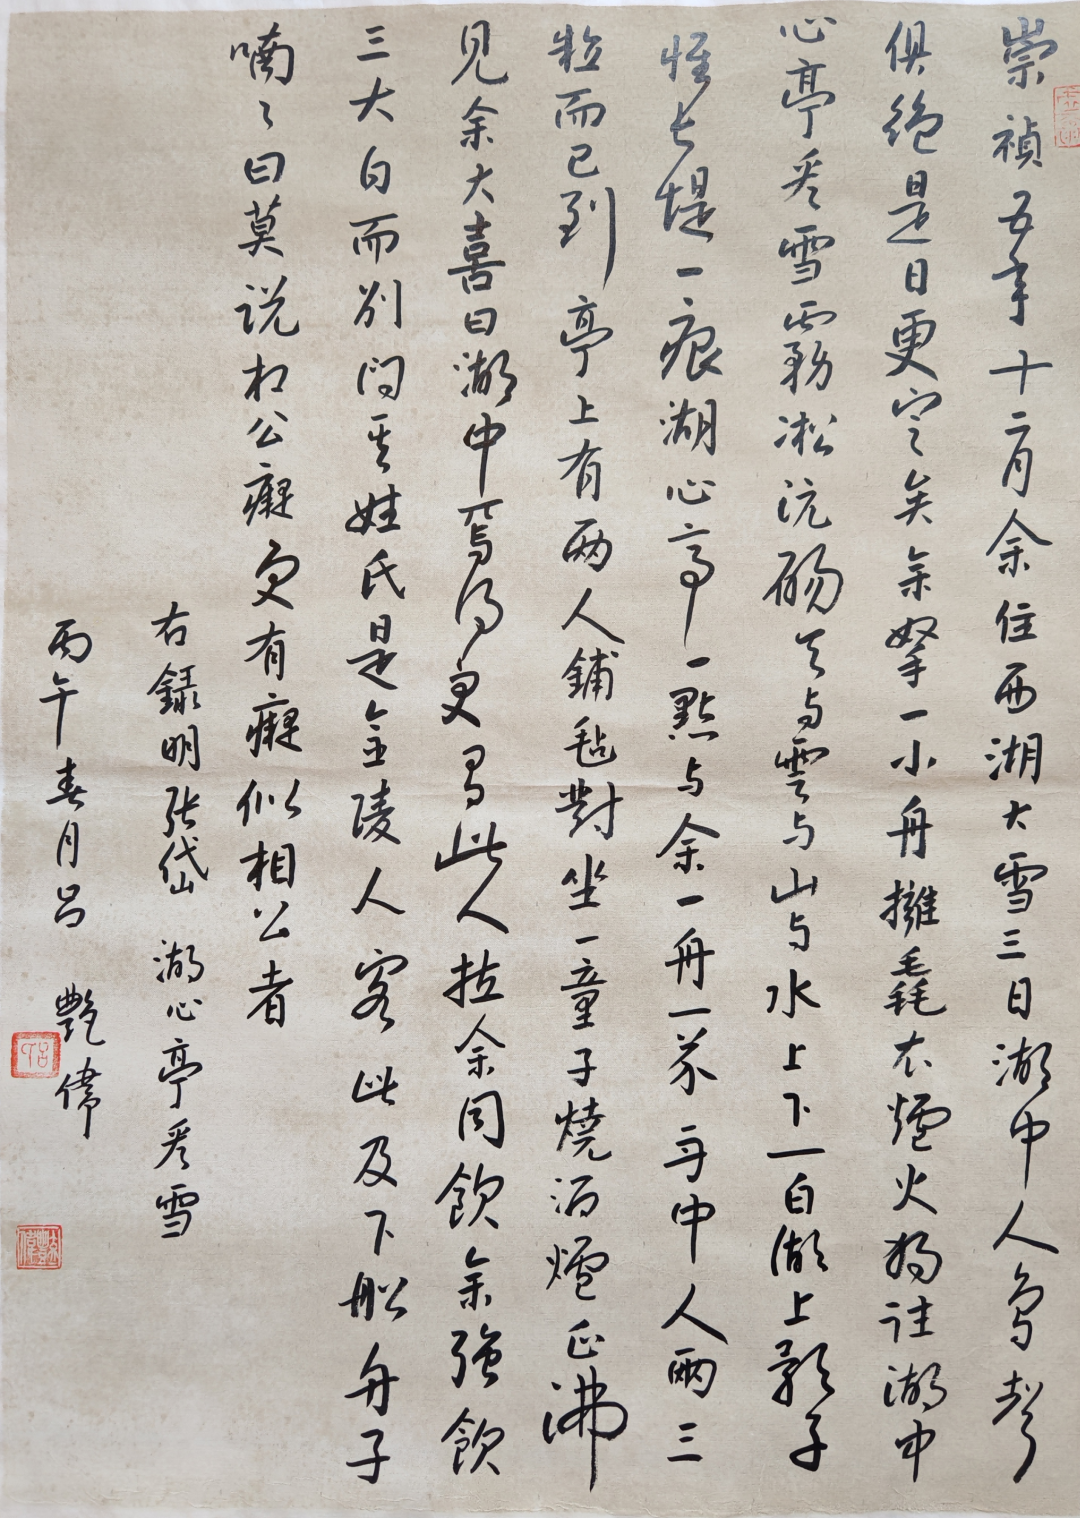 崇禎五年十二月余住西湖大雪三日湖中人鳥聲
俱絕是日更定矣余拏一小舟擁毳衣爐火獨往湖中
心亭看雪霧凇沆碭天与雲与山与水上下一白湖上影子
惟長堤一痕湖心亭一點与余一舟一芥舟中人兩三
粒而已到亭上有兩人鋪毡對坐一童子燒酒爐正沸
見余大喜曰湖中焉得更有此人拉余同飲余強飲
三大白而別問其姓氏是金陵人客此及下船舟子
喃々曰莫説相公癡更有癡似相公者
右録明張岱 湖心亭看雪
丙午春月呂 艷偉